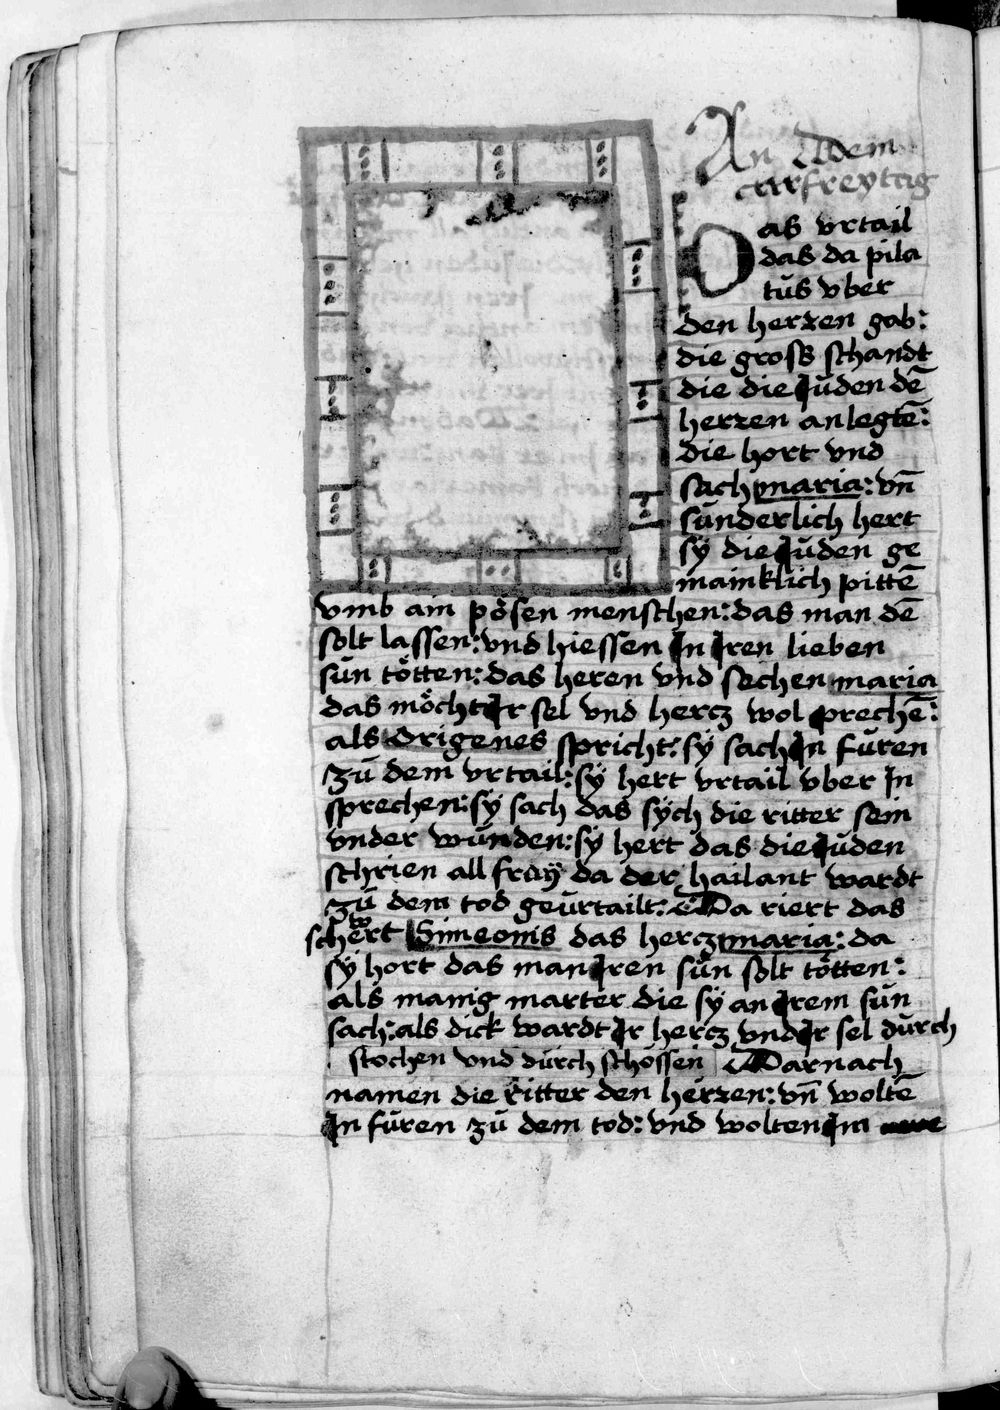 An Dem
carfreytag
Das vrtail
das da pila
tus vber
den herren gab:
die gross schandt
die die Juden dē
herren anlegtē:
die hort vnd
sach maria: vn̄
sunderlich hert
sÿ die Juden ge
mainklich pittē
vmb ain pösen menschen: das man dē
solt lassen: vnd hiessen In Iren lieben
sun tötten: das heren vnd sechen maria
das möcht Ir sel vnd hercz wol prechē:
als Origenes spricht: sÿ sach In furen
zu dem vrtail: sÿ hert vrtail vber In
sprechen: sÿ sach das sÿch die ritter sein
vnder wunden: sÿ hert das die Juden
schrien all fraÿ da der hailant wardt
zu dem tod geurtailt: Da riert das
schwert Simeonis das hercz maria: da
sÿ hort das man Iren sun solt tötten:
als manig marter die sÿ an Irem sun
sach: als dick wardt Ir hercz vnd Ir sel durch
stochen vnd durch schossen Darnach
namen die ritter den herren: vn̄ woltē
In furen zu dem tod: vnd wolten Im